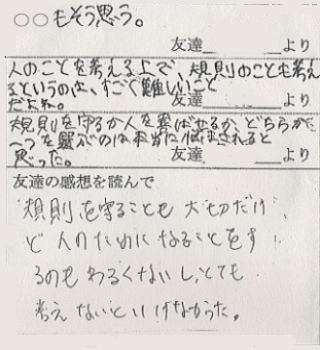 ○○もそう思う。
友達　　　　　より
人のことを考える上で、規則のことも考え
るというのは、すごく難しいこと
だよね。
友達　　　　　より
規則を守るか人を喜ばせるか、どちらか
一つを選ぶのは本当に
思った。
友達　　　　　より
友達の感想を読んで
規則を守ることも大切だけ
ど人のためになることをす
るのもわるくないし、とても
考えないといけなかった。